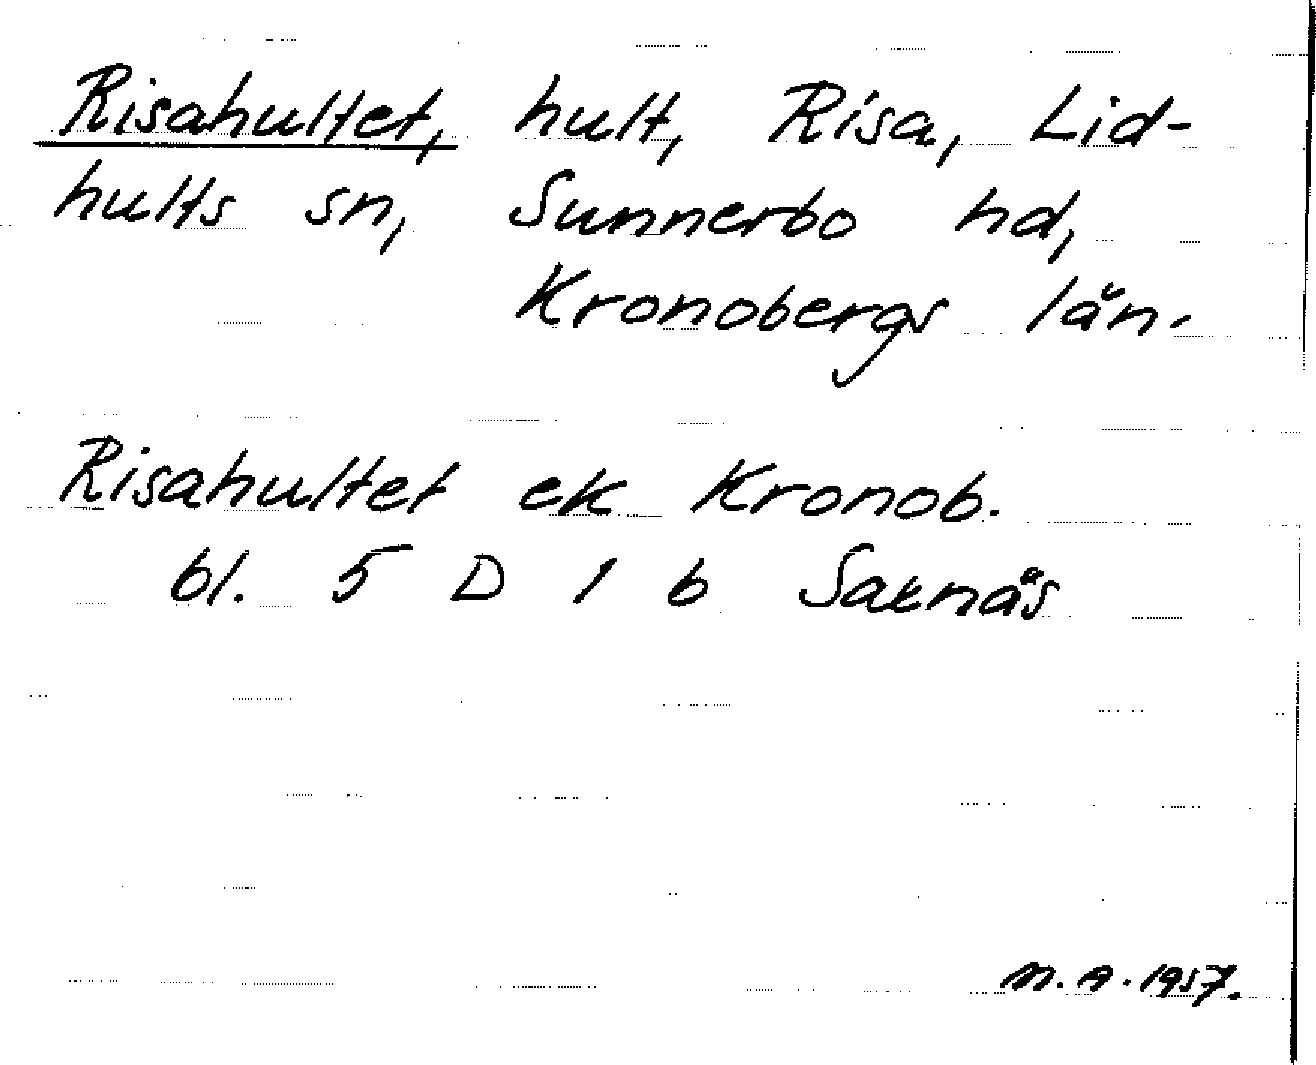 Risahultet, hult, Risa, Lid-
hults sn, Sunnerbo hd,
Kronobergs län.
Risahultet ek Kronob.
bl. 5 D 1 b Saxnäs
M. A. 1957.